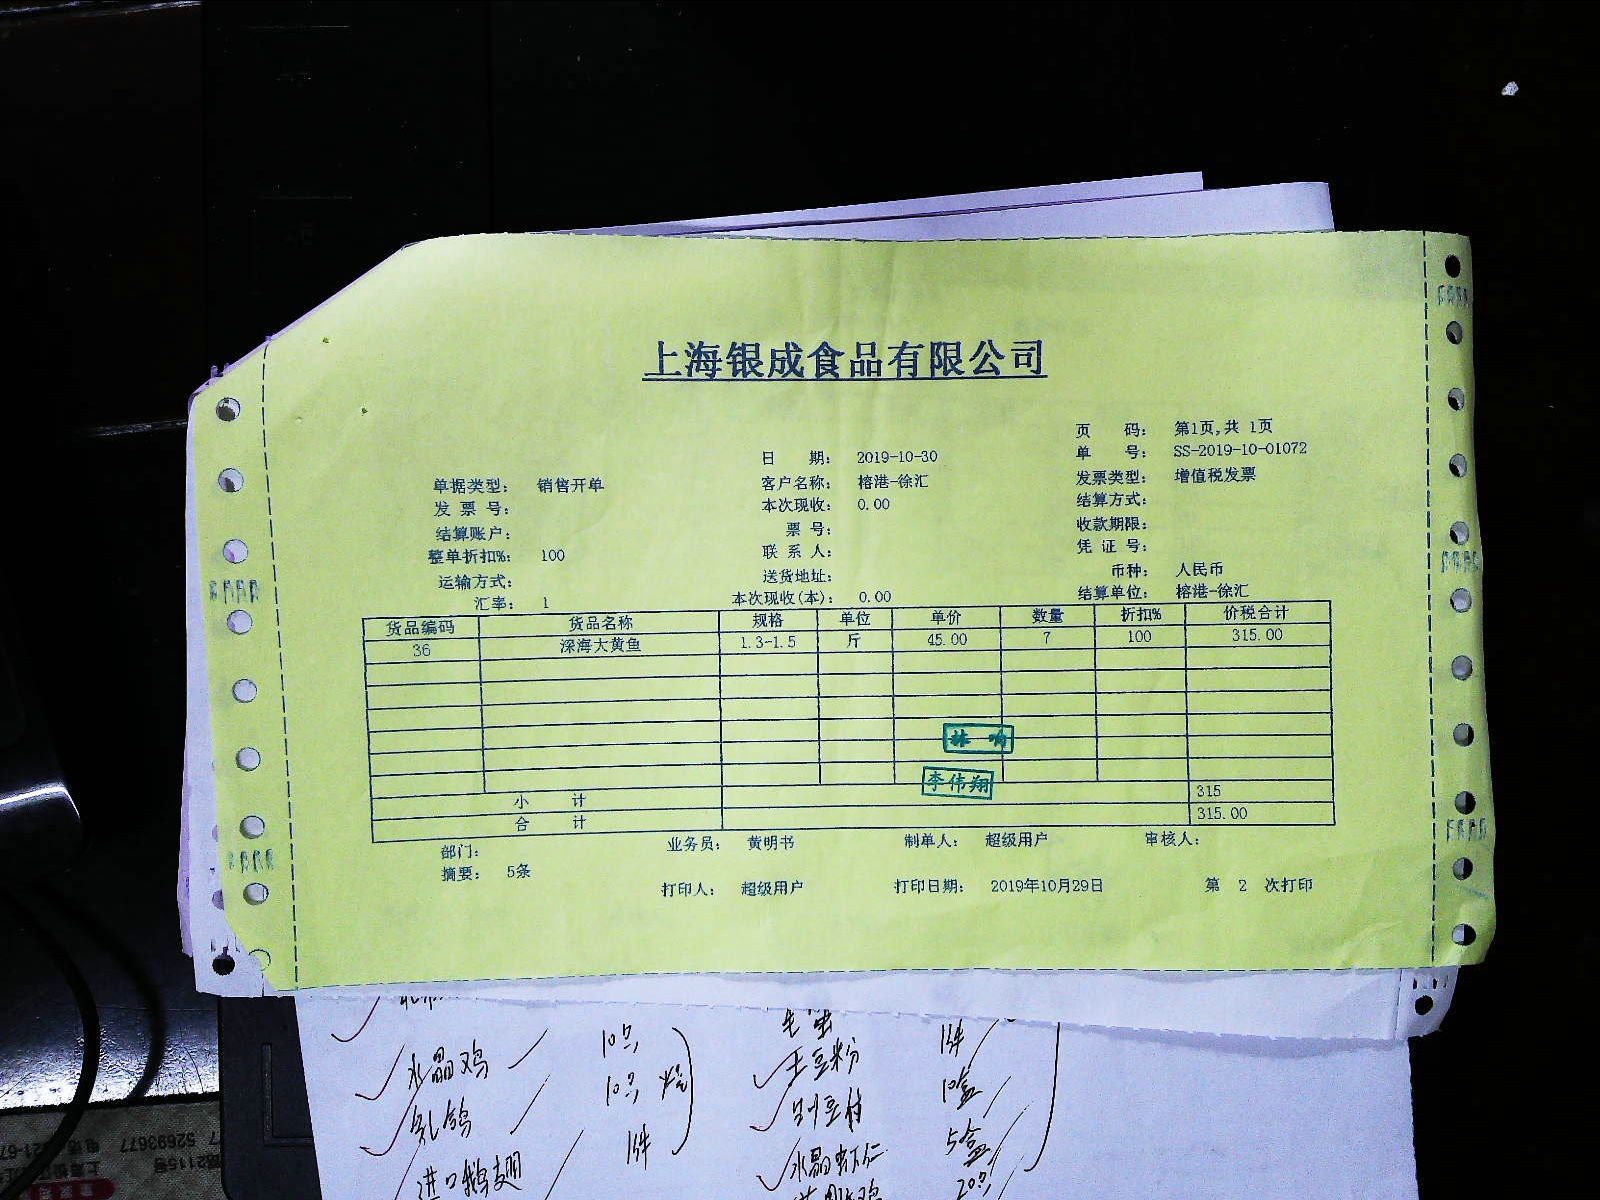 上海银成食品有限公司
页 码: 第1页,共 1页
日 期: 2019-10-30 单 号: SS-2019-10-01072
单据类型: 销售开单 客户名称: 榕港-徐汇 发票类型: 增值税发票
发 票 号: 本次现收: 0.00 结算方式:
结算账户: 票 号: 收款期限:
整单折扣%: 100 联 系 人: 凭 证 号:
运输方式: 送货地址: 币种: 人民币
汇率: 1 本次现收(本): 0.00 结算单位: 榕港-徐汇
货品编码 货品名称 规格 单位 单价 数量 折扣% 价税合计
36 深海大黄鱼 1.3-1.5 斤 45.00 7 100 315.00
林 响
李伟翔
小 计 315
合 计 315.00
部门: 业务员: 黄明书 制单人: 超级用户 审核人:
摘要: 5条
打印人: 超级用户 打印日期: 2019年10月29日 第 2 次打印
水晶鸡 10只
乳鸽 10只
进口鹅翅 1件
生蚝 1件
土豆粉 10盒
5盒
水晶虾仁 20只
52693677